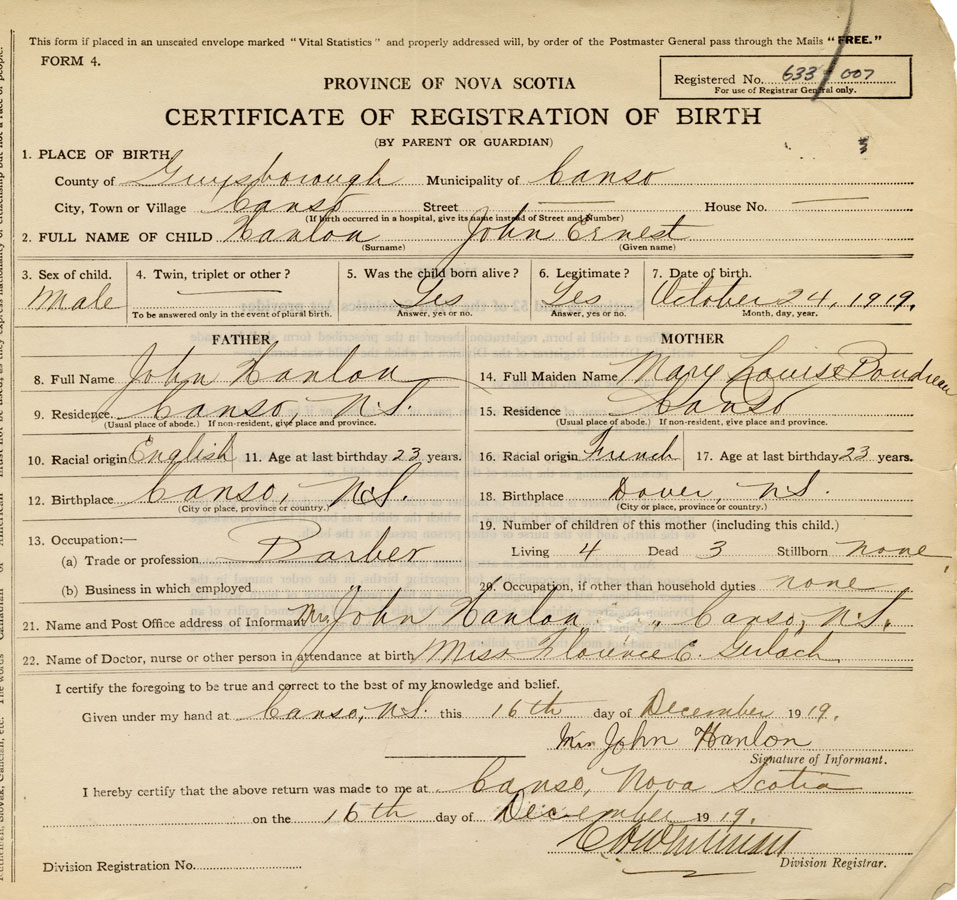 This form if placed in an unsealed envelope marked "Vital Statistics" and properly addressed will, by order of the Postmaster General pass through the Mails "FREE."
FORM 4.
Registered No. 633 007
For use of Registrar General only.
PROVINCE OF NOVA SCOTIA
CERTIFICATE OF REGISTRATION OF BIRTH
(BY PARENT OR GUARDIAN)
1. PLACE OF BIRTH
County of Guysborough Municipality of Canso
City, Town or Village Canso Street — House No. —
(If birth occurred in a hospital, give its name instead of Street and Number)
2. FULL NAME OF CHILD Hanlon John Ernest
(Surname) (Given name)
3. Sex of child. 4. Twin, triplet or other? 5. Was the child born alive? 6. Legitimate? 7. Date of birth.
Male — Yes Yes October 24, 1919.
To be answered only in the event of plural birth. Answer, yes or no. Answer, yes or no. Month, day, year.
FATHER MOTHER
8. Full Name John Hanlon 14. Full Maiden Name Mary Louise Boudreau
9. Residence Canso, N.S. 15. Residence Canso
(Usual place of abode.) If non-resident, give place and province. (Usual place of abode.) If non-resident, give place and province.
10. Racial origin English 11. Age at last birthday 23 years. 16. Racial origin French 17. Age at last birthday 23 years.
12. Birthplace Canso, N.S. 18. Birthplace Dover, N.S.
(City or place, province or country.) (City or place, province or country.)
19. Number of children of this mother (including this child.)
13. Occupation:—
(a) Trade or profession Barber Living 4 Dead 3 Stillborn none
(b) Business in which employed 20. Occupation, if other than household duties none
21. Name and Post Office address of Informant Mrs John Hanlon, " " Canso, N.S.
22. Name of Doctor, nurse or other person in attendance at birth Miss Florence C. Gerlach
I certify the foregoing to be true and correct to the best of my knowledge and belief.
Given under my hand at Canso, N.S. this 16th day of December 1919.
Mrs John Hanlon
Signature of Informant.
I hereby certify that the above return was made to me at Canso, Nova Scotia
on the 16th day of December 1919.
Division Registration No. Division Registrar.